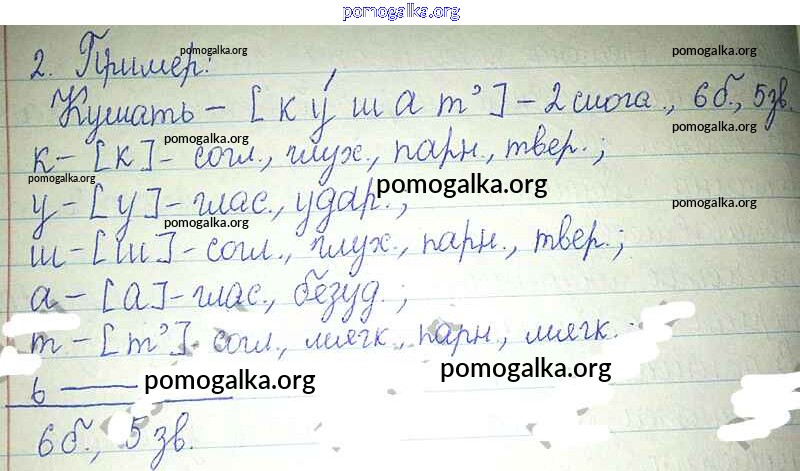 pomogalka.org
2. Пример: pomogalka.org pomogalka.org
Кушать – [ к у́ ш а т' ] – 2 слога., 6 б., 5 зв.
pomogalka.org pomogalka.org pomogalka.org
к – [к] – согл., глух., парн., твер.;
pomogalka.org pomogalka.org
у – [у] – глас., удар.; pomogalka.org
pomogalka.org
ш – [ш] – согл., глух., парн., твер.;
а – [а] – глас., безуд.;
т – [т'] – согл., мягк., парн., мягк.
ь —— pomogalka.org pomogalka.org
6 б., 5 зв.